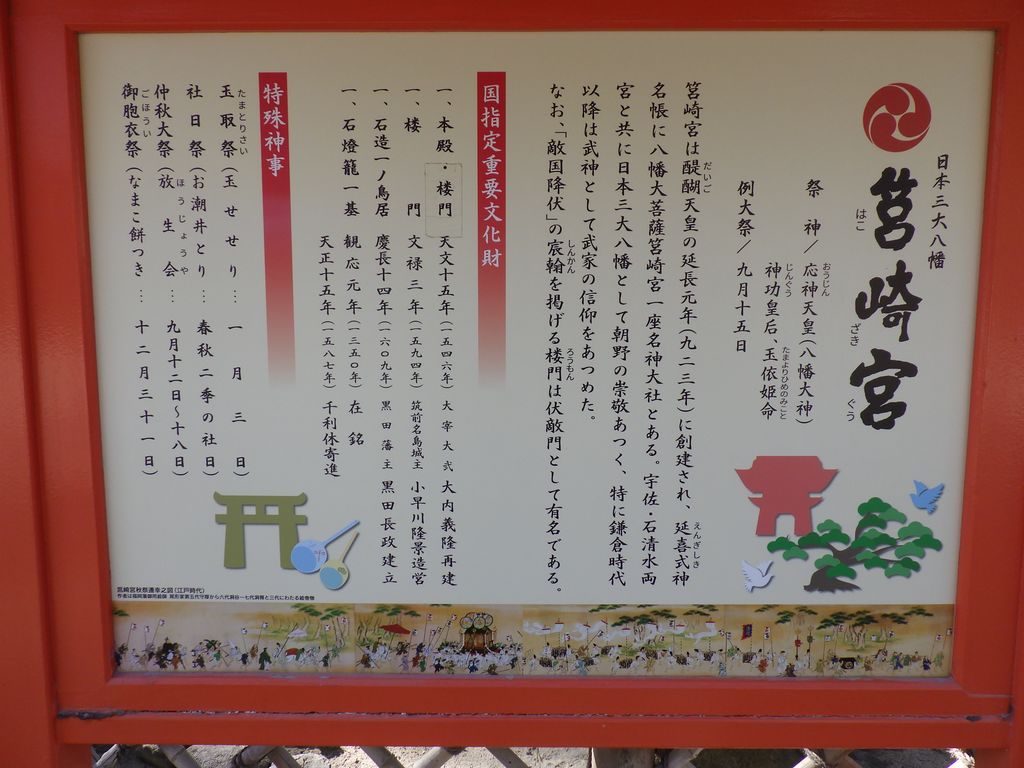 日本三大八幡
筥崎宮
はこ ざき ぐう
祭神／応神天皇(八幡大神)
おうじん
神功皇后、玉依姫命
じんぐう たまよりひめのみこと
例大祭／九月十五日
筥崎宮は醍醐天皇の延長元年(九二三年)に創建され、延喜式神
だいご えんぎしき
名帳に八幡大菩薩筥崎宮一座名神大社とある。宇佐・石清水両
宮と共に日本三大八幡として朝野の崇敬あつく、特に鎌倉時代
以降は武神として武家の信仰をあつめた。
なお、「敵国降伏」の宸翰を掲げる楼門は伏敵門として有名である。
しんかん ろうもん
国指定重要文化財
一、本殿・楼門 天文十五年(一五四六年) 大宰大弐 大内義隆再建
一、楼門 文禄三年(一五九四年) 筑前名島城主 小早川隆景造営
一、石造一ノ鳥居 慶長十四年(一六〇九年) 黒田藩主 黒田長政建立
一、石燈籠一基 観応元年(一三五〇年) 在銘
天正十五年(一五八七年) 千利休寄進
特殊神事
玉取祭(玉せせり… 一月三日)
たまとりさい
社日祭(お潮井とり… 春秋二季の社日)
仲秋大祭(放生会… 九月十二日〜十八日)
ほうじょうや
御胞衣祭(なまこ餅つき… 十二月三十一日)
ごほうい
筥崎宮秋祭遷幸之図(江戸時代)